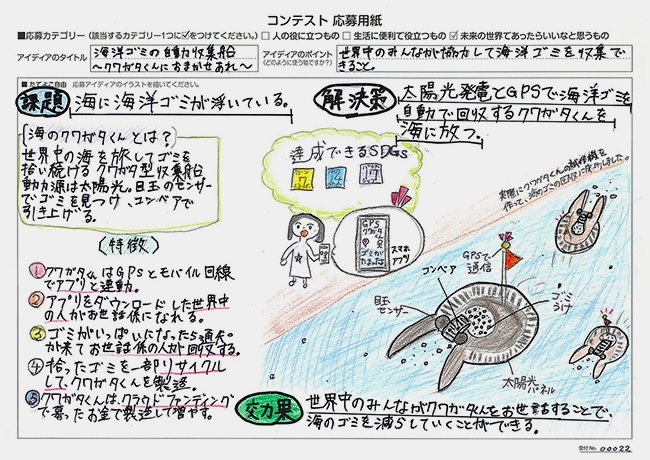 コンテスト 応募用紙
■応募カテゴリー(該当するカテゴリー1つに☑をつけてください。) □ 人の役に立つもの □ 生活に便利で役立つもの ☑ 未来の世界であったらいいなと思うもの
アイディアのタイトル
海洋ゴミの自動収集船
〜クワガタくんにおまかせあれ〜
アイディアのポイント
(どのように使う物ですか?)
世界中のみんなが協力して海洋ゴミを収集で
きること。
■たてよこ自由 応募アイディアのイラストを描いてください。
課題
海に海洋ゴミが浮いている。
解決策
太陽光発電とGPSで海洋ゴミを
自動で回収するクワガタくんを
海に放つ。
海のクワガタくんとは?
世界中の海を旅してゴミを
拾い続けるクワガタ型収集船
動力源は太陽光。目玉のセンサー
でゴミを見つけ、コンベアで
引き上げる。
(特徴)
① クワガタくんはGPSとモバイル回線
でアプリと連動。
② アプリをダウンロードした世界中
の人がお世話係になれる。
③ ゴミがいっぱいになったら通知
が来てお世話係の人が回収する。
④ 拾ったゴミを一部リサイクル
してクワガタくんを製造。
⑤ クワガタくんは、クラウドファンディング
で募ったお金で製造して増やす。
達成できるSDGs
7
14
17
GPS
クワガタ
くん
ゴミが
スマホ
アプリ
実際にクワガタくんの試作機を
作って、海のゴミの回収に
GPSで
通信
コンベア
目玉
センサー
ゴミ
うけ
太陽光
パネル
効果
世界中のみんながクワガタくんをお世話することで、
海のゴミを減らしていくことができる。
受付No. 00022